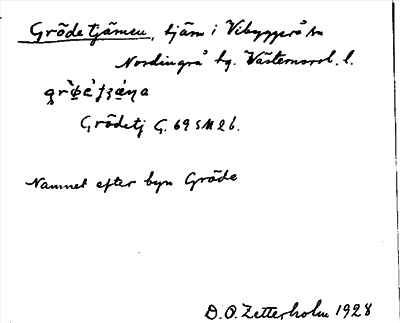 Grödetjämen, tjärn i Vibyggerå sn
Nordingrå tg. Västernorrl. l.
Grödetj G. 69 SM 26.
Namnet efter byn Gröde
D. O. Zetterholm 1928